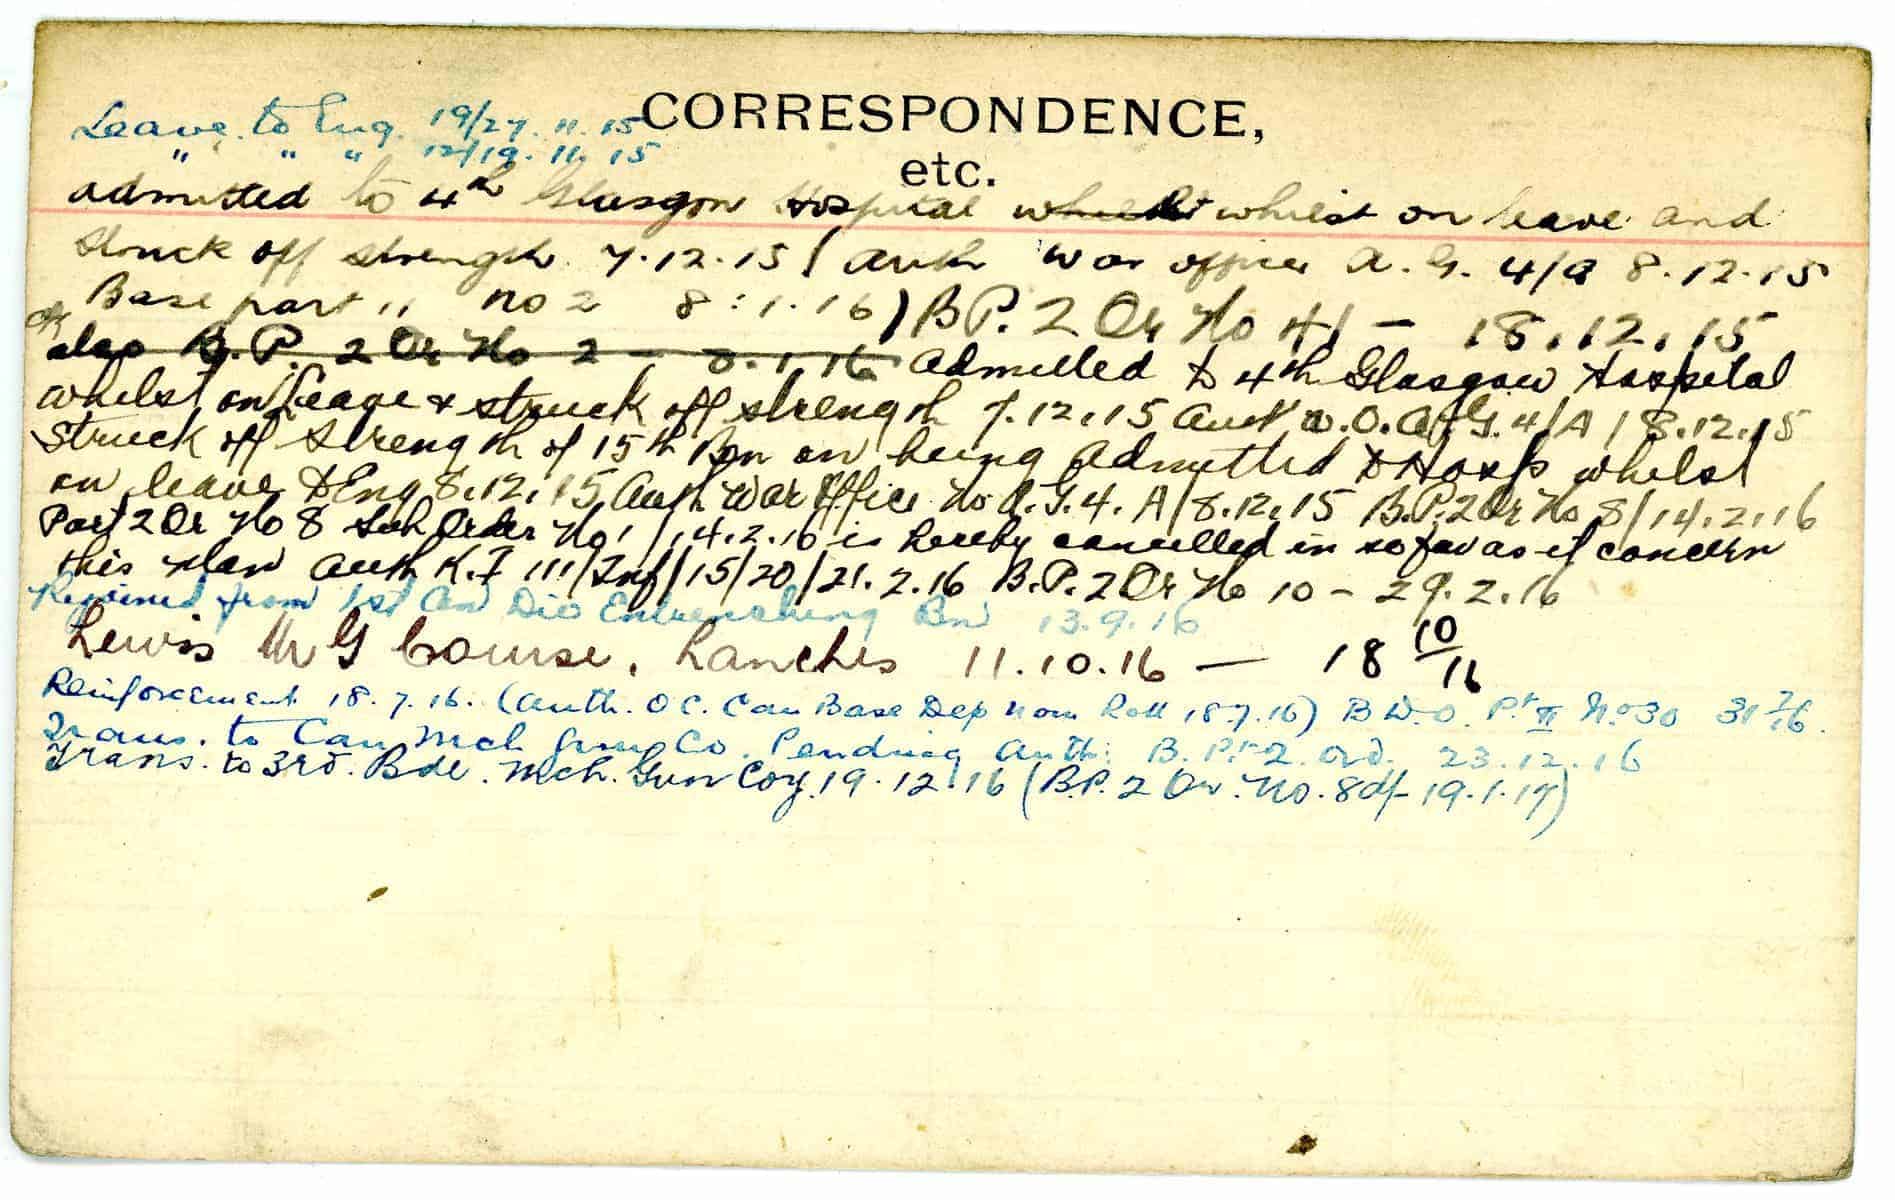 CORRESPONDENCE,
etc.
Leave to Eng. 19/27. 11. 15
" " " 12/19. 11. 15
admitted to 4th Glasgow Hospital whilst on leave and
struck off strength 7.12.15 ( Auth War office A. G. 4/a 8.12.15
Base part 11 no 2 8:1.16) B P. 2 Or No 41 – 18.12.15
also B. P. 2 Or No 2 – 8.1.16 admitted to 4th Glasgow Hospital
whilst on leave & struck off strength 7.12.15 Auth W.O. A.G. 4/A / 8.12.15
Struck off strength of 15th Bn on being admitted to Hosp whilst
on leave to Eng 8.12.15 Auth War Office No A.G.4. A/8.12.15 B.P.2 Or No 8/14.2.16
Part 2 Or No 8 Sub Order No 1 14.2.16 is hereby cancelled in so far as it concern
this man Auth K.F 111/Inf/15/20/21.2.16 B.P.2 Or No 10 – 29.2.16
Rejoined from 1st Can Div Entrenching Bn 13.9.16
Lewis M G Course, 11.10.16 — 18 10/16
Reinforcement 18.7.16. (Auth. O C. Can Base Dep Nom Roll 18.7.16) Pt II No 30 31 7/16.
Trans. to Can Mch Gun Co. Pending Auth: B. Pt 2. Ord. 23.12.16
Trans. to 3rd. Bde. Mch. Gun Coy 19.12.16 (B.P. 2 Or. No. 8 d/- 19.1.17)